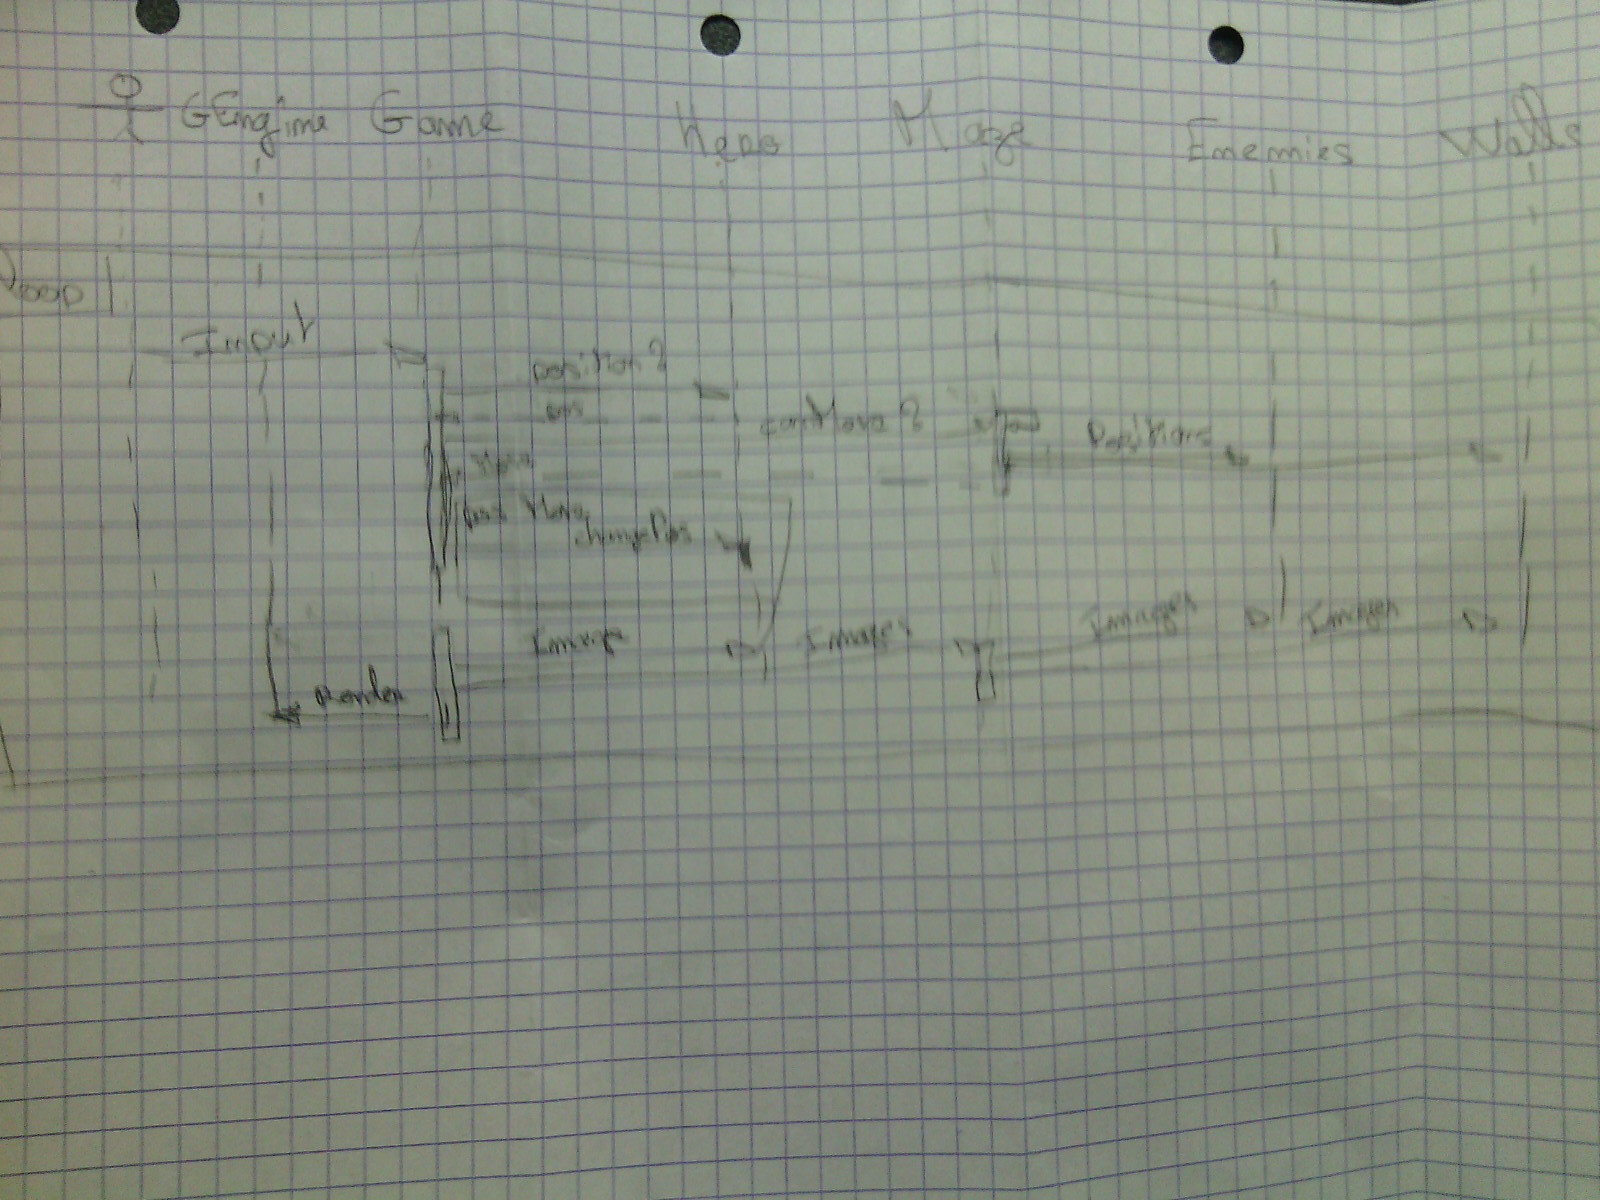 GEngine Game Hero Maze Enemies Walls
loop
Input
position?
pos canMove? Positions
Move
changePos
Image Images Images Images
render